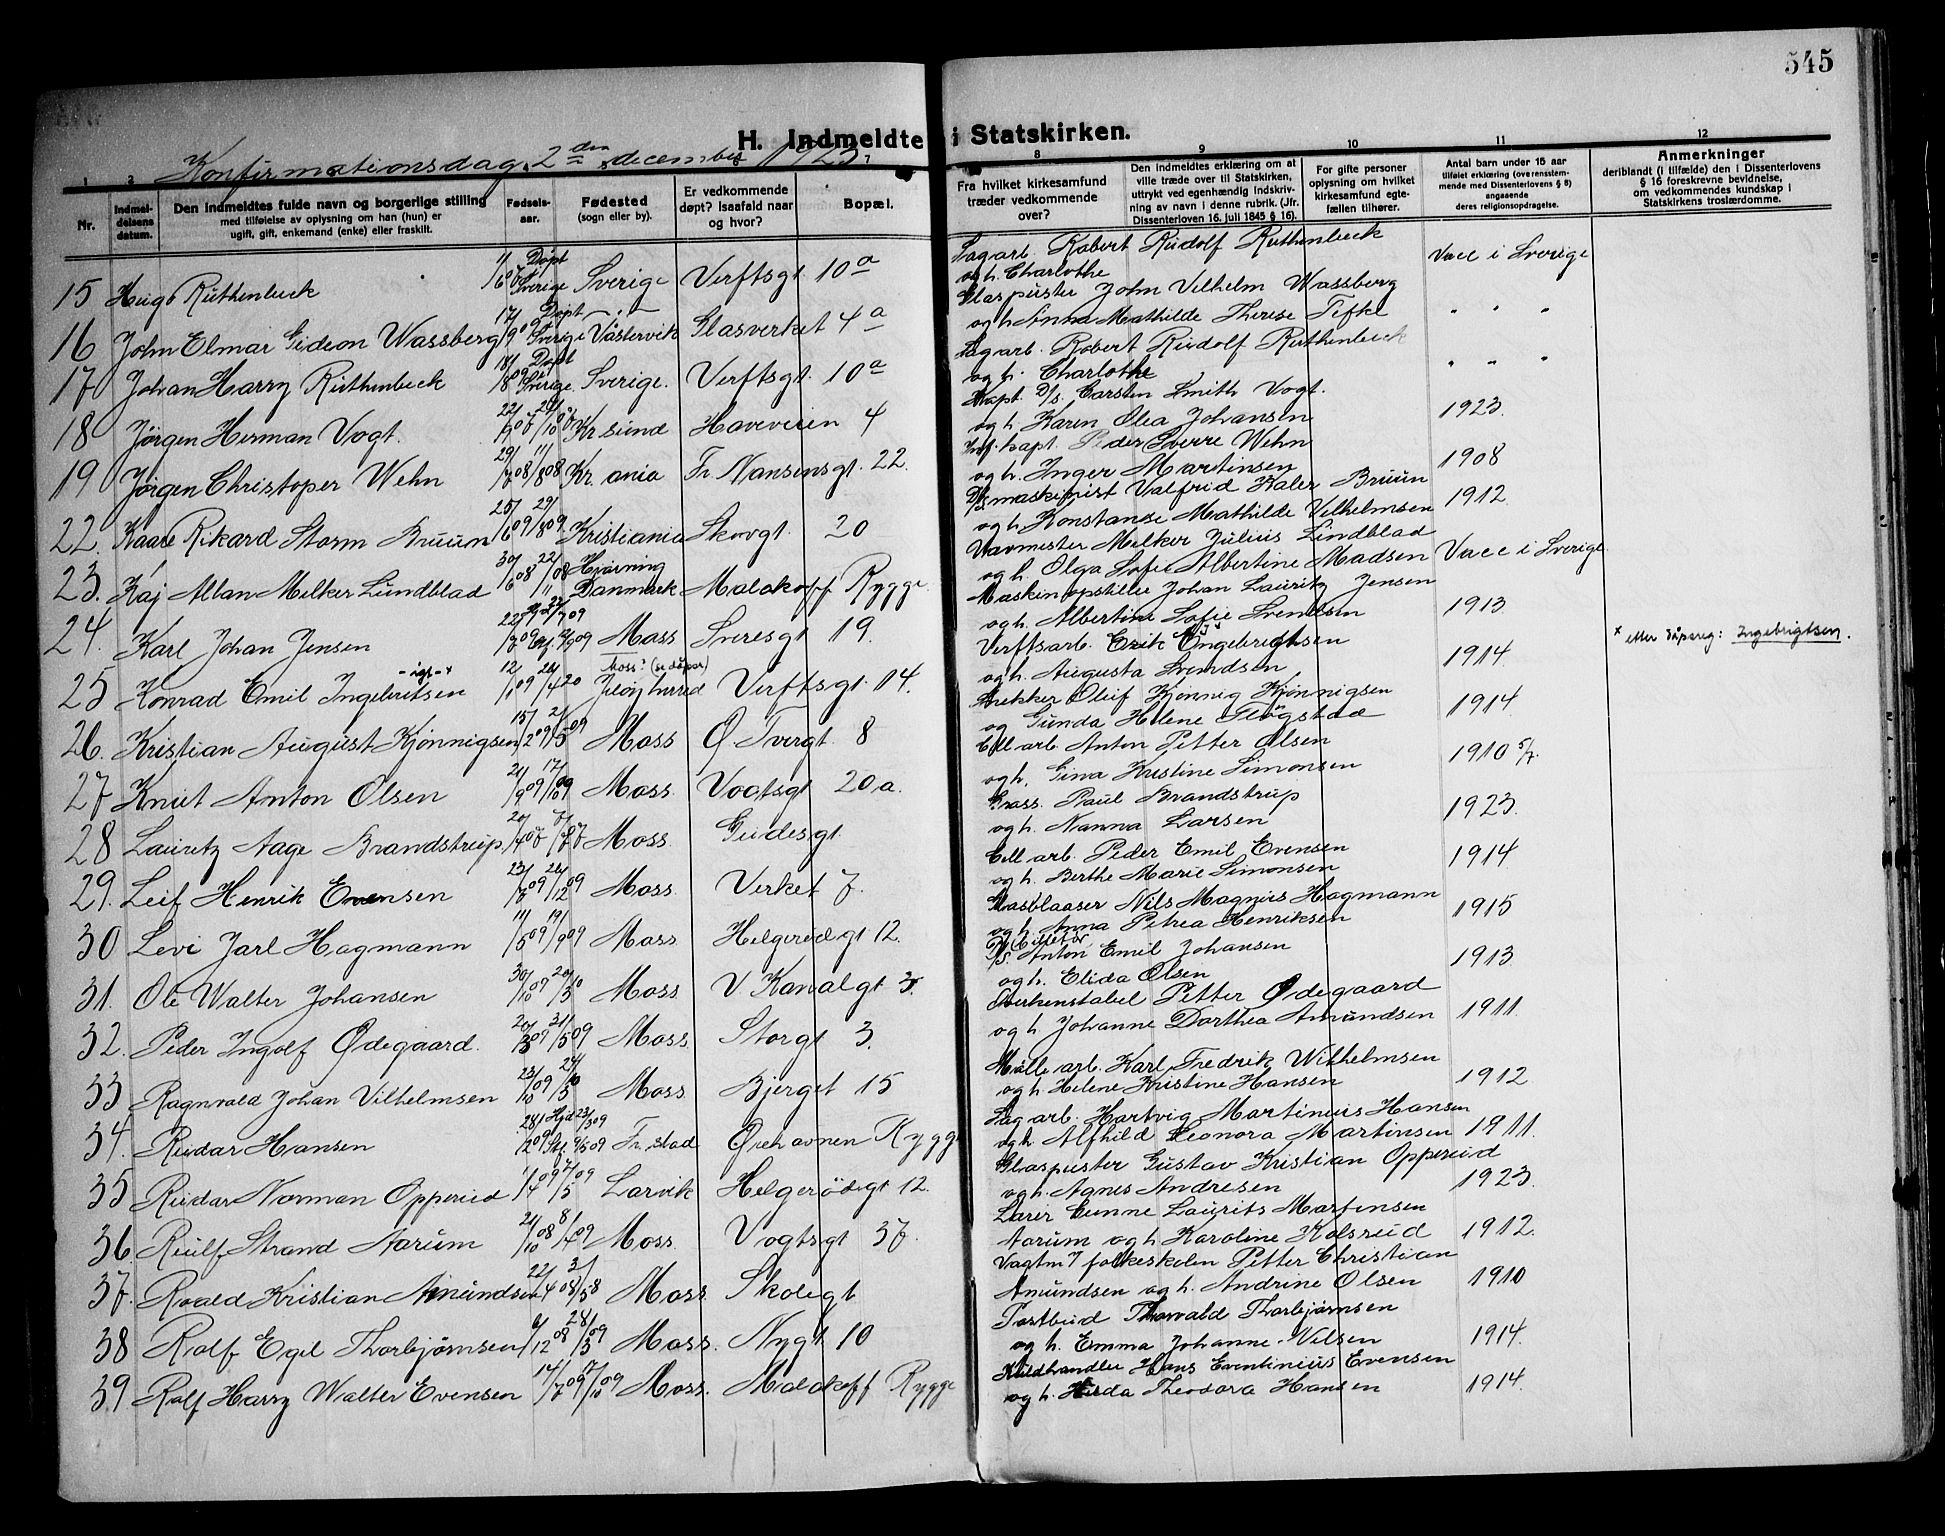 545
H. Indmeldte i Statskirken.
Konfirmationsdag. 2den december 1923
1 2 7 8 9 10 11 12
Nr.
Indmel-
delsens
datum.
Den indmeldtes fulde navn og borgerlige stilling
med tilføielse av oplysning om han (hun) er
ugift, gift, enkemand (enke) eller fraskilt.
Fødsels-
aar.
Fødested
(sogn eller by).
Er vedkommende
døpt? Isaafald naar
og hvor?
Bopæl.
Fra hvilket kirkesamfund
træder vedkommende
over?
Den indmeldtes erklæring om at
ville træde over til Statskirken,
uttrykt ved egenhændig indskriv-
ning av navn i denne rubrik. (Jfr.
Dissenterloven 16. juli 1845 § 16).
For gifte personer
oplysning om hvilket
kirkesamfund egte-
fællen tilhører.
Antal barn under 15 aar
tilføiet erklæring (overensstem-
mende med Dissenterlovens § 8)
angaaende
deres religionsopdragelse.
Anmerkninger
deriblandt (i tilfælde) den i Dissenterlovens
§ 16 foreskrevne bevidnelse,
om vedkommendes kundskap i
Statskirkens troslærdomme.
15 Hugo Ruthenbeck Døpt i Sverige Sverige Verftsgt 10a Sagarb. Robert Rudolf Ruthenbeck Vacc i Sverige
og h. Charlothe
16 John Elmar Gideon Wassberg Døpt i Sverige Västervik Glasverket 4a Glaspuster John Vilhelm Wassberg " " "
og h Anna Mathilde Therese Tefke
17 Johan Harry Ruthenbeck Døpt i Sverige Sverige. Verftsgt. 10a Sagarb. Robert Rudolf Ruthenbeck " " "
og h. Charlothe
18 Jørgen Herman Vogt. Kr.sund Haveveien 4 Kapt. D/s. Carsten Smith Vogt. 1923.
og h Karen Olea Johansen
19 Jørgen Christoper Wehn 29/7 08 11/8 08 Kr.ania Fr. Nansensgt. 22. Inf. kapt. Peder Sverre Wehn 1908
og h. Inger Martinsen
22. Kaare Rikard Storm Bruun 25/6 09 29/8 09 Kristiania Skovgt. 20 D/s maskinist Valfrid Kaler Bruun 1912
og h. Konstanse Mathilde Vilhelmsen
23. Kaj Allan Melker Lundblad 30/6 08 22/11 08 Hjøring Danmark Malakoff Rygge Melker Julius Lindblad Vacc i Sverige
og h. Olga Sofie Albertine Madsen
24. Karl Johan Jensen Moss Sveresgt 19. Maskinopstiller Johan Lauritz Jensen 1913.
og h. Albertine Sofie Svendsen
25 Konrad Emil Ingebritsen -igt-x 12/1 09 24/4 20 Moss? (se dåpar) Jeløy herred Verftsgt. 14. Verftsarb. Erik Engebregtsen 1914. x etter dåpsreg: Ingebrigtsen.
og h. Augusta Svendsen
26. Kristian August Kjønnigsen 15/2 09 2/5 09 Moss Ø Tvergt. 8 Oleif Kjønnig Kjønnigsen 1914.
og Gunda Helene Fløgstad
27 Knut Anton Olsen 21/9 09 17/10 09 Moss. Vogtsgt 20 a. Cell arb. Anton Petter Olsen 1910 5/7.
og h. Gina Kristine Simonsen
28 Lauritz Aage Brandstrup. Moss. Gudesgt. Grass. Paul Brandstrup 1923.
og h. Nanna Larsen
29. Leif Henrik Evensen Moss Verket 7. Cell arb. Peder Emil Evensen 1914
og h. Berthe Marie Simonsen
30 Levi Jarl Hagmann 11/5 09 19/9 09 Moss. Helgerødgt 12. Glasblaaser Nils Magnus Hagmann 1915
og h. Anna Petrea Henriksen
31. Ole Walter Johansen 30/10 09 20/3 10 Moss V Kanalgt 3. D/s. Billetør Anton Emil Johansen 1913
og h. Elida Olsen
32. Peder Ingolf Ødegaard. 20/3 09 31/5 09 Moss. Storgt 3. Overkonstabel Petter Ødegaard 1911.
og h. Johanne Dorthea Amundsen
33 Ragnvald Johan Vilhelmsen 23/10 09 Moss Bjerget 15 Mølle arb. Karl Fredrik Wilhelmsen 1912
og h Helene Kristine Hansen
34. Reidar Hansen Fr.stad Ørehavnen Rygge Sagarb. Hartvig Martinius Hansen 1911.
og h Alfhild Leonora Martinsen
35 Reidar Norman Opperud Larvik Helgerødegt 12. Glaspuster Gustav Kristian Opperud 1923.
og h. Agnes Andresen
36. Rulf Strand Aarum 21/10 08 8/4 09 Moss. Vogtsgt 37. Lærer Gunne Laurits Martinsen
Aarum og h Karoline Kolsrud 1912.
37. Roald Kristian Amundsen 22/4 08 3/5 08 Moss. Skolegt Vagtm. i folkeskolen Petter Christian
Amundsen og h. Andrine Olsen 1910
38 Rolf Egil Thorbjørnsen 6/12 08 28/3 09 Moss. Nygt. 10 Postbud Thorvald Thorbjørnsen
og h. Emma Johanne Nilsen 1914.
39. Rolf Harry Walter Evensen Moss. Malakoff Rygge Kuldhandler Hans Eventinius Evensen
og h. Hilda Theodora Hansen 1914.